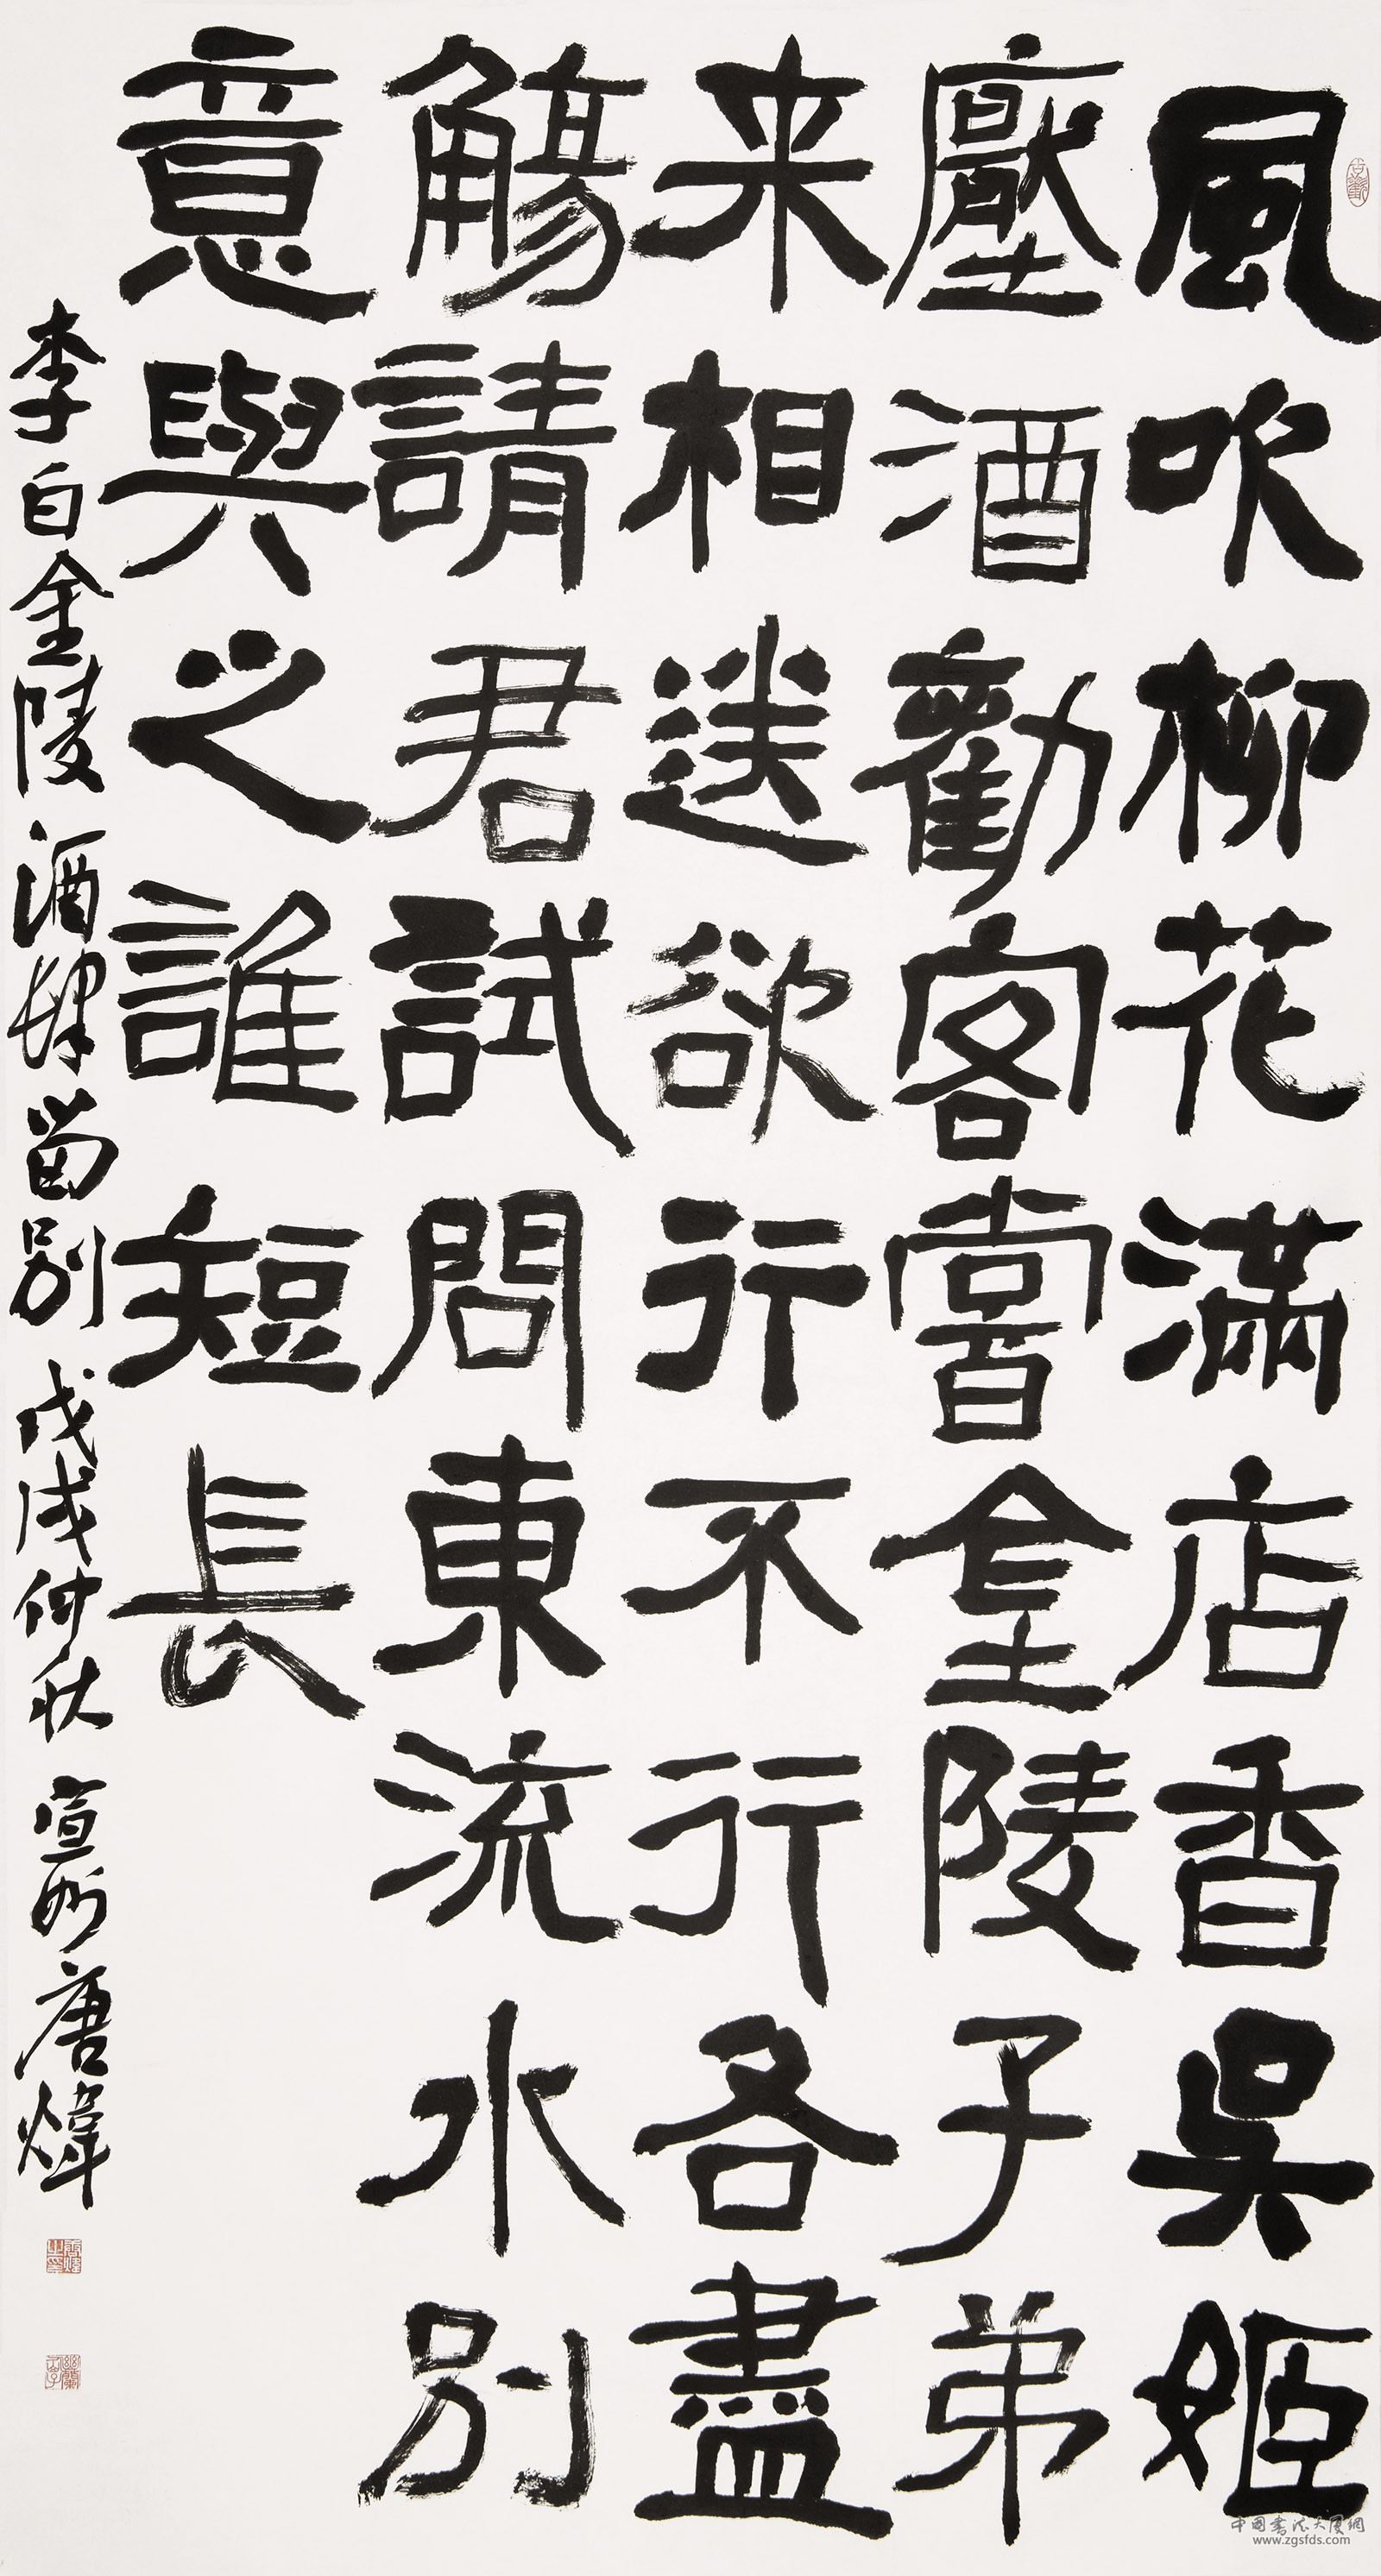 風吹柳花滿店香吳姬
壓酒勸客嘗金陵子弟
来相送欲行不行各盡
觴請君試問東流水別
意與之誰短長
李白金陵酒肆留別 戊戌仲秋 宣州唐煒
中国书法大厦網
www.zgsfds.com